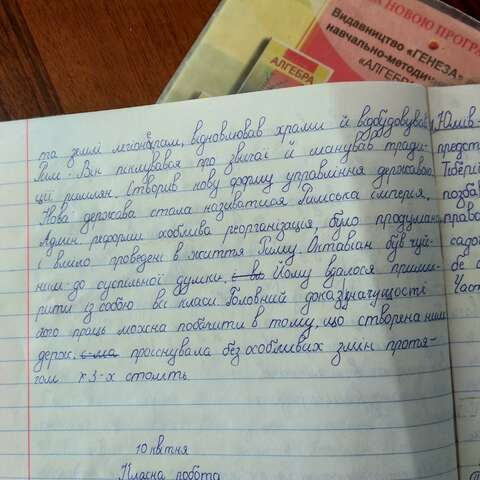 К НОВОЮ ПРОГРА
Видавництво «ГЕНЕЗА»
навчально-методич
«АЛГЕБРА
АЛГЕБРА
та землі легіонерам, відновлював храми й відбудовував
Рим. Він піклувався про звичаї й шанував тради-
ції римлян. Створив нову форму управління державою.
Нова держава стала називатися Римська імперія.
Адмін реформи хоблива реорганізація, було продумана
і вміло проведені в життя Риму. Октавіан був чуй-
ним до суспільної думки, Йому вдалося прими-
рити із собою всі класи. Головний доказ значущості
його праць можна побачити в тому, що створена ним
держ. проіснувала без особливих змін протя-
гом 3-х століть.
10 квітня
Класна робота
Юлів-
предст
Тіберії
позбав
права
садо
бе с
Част